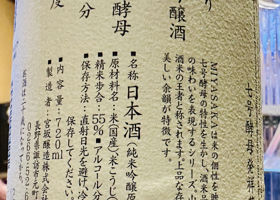 七号酵母発祥
MIYASAKAは米の個性を映
七号酵母の特性を生かし、酒米品
の味わいを表現するシリーズ。山
酒米の王者と称されます。上品な存
美しい余韻が特徴です。
●名称 日本酒(純米吟醸原
●原材料名:米(国産)・米こうじ
●精米歩合:55%●アルコール分
●保存方法:直射日光を避け、冷
保存してください
●内容量:720ml
●製造者:宮坂醸造株式会
長野県諏訪市元町
醸酒
り
酵母
分
度